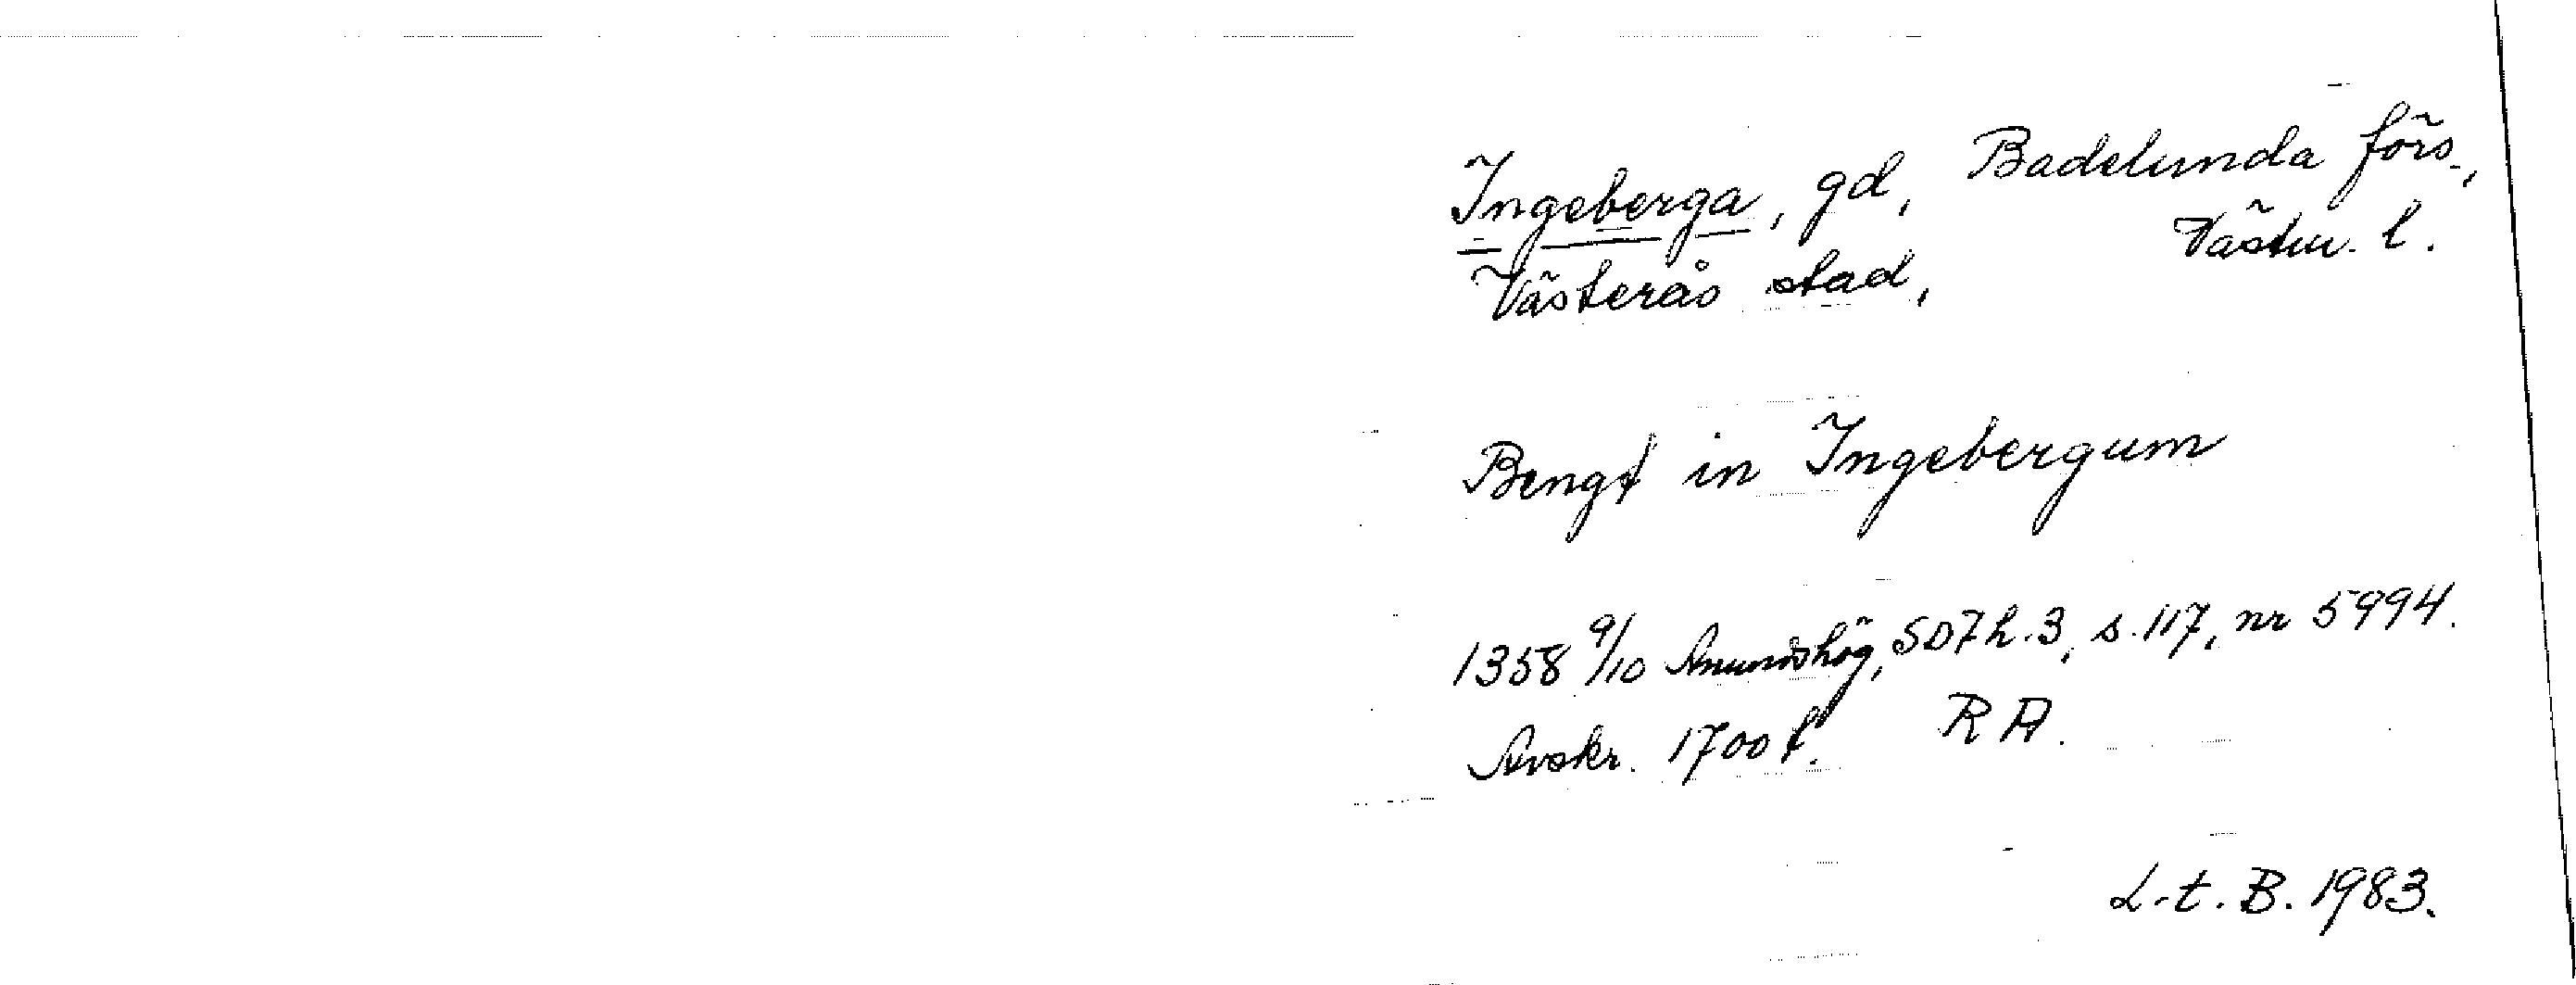 Ingeberga, gd, Badelunda förs.,
Västerås stad, Västm. l.
Bengt in Ingebergum
1358 9/10 Anundshög, SD 7 h. 3, s. 117, nr 5994.
Avskr. 1700 t. RA.
L-t. B. 1983.